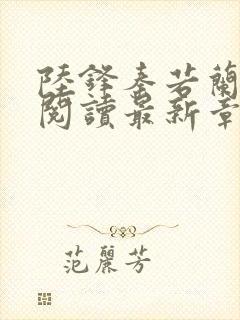 陸鋒秦若蘭
閱讀最新章
范麗芳